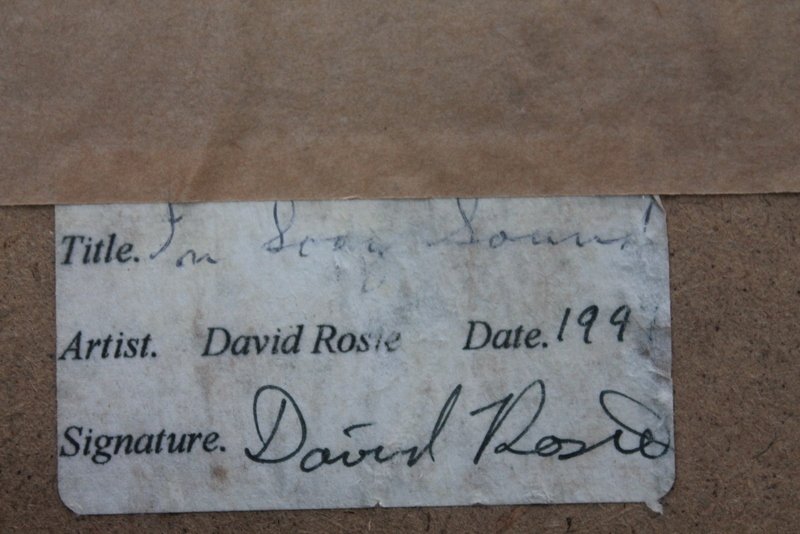 Title. In Sound
Artist. David Rosie Date. 199
Signature. David Rosie